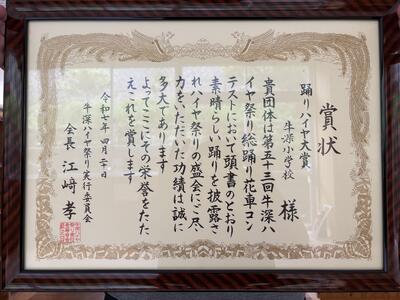 賞状
踊りハイヤ大賞
牛深小学校 様
貴団体は第五十三回牛深ハ
イヤ祭り総踊り花車コン
テストにおいて頭書のとおり
素晴らしい踊りを披露さ
れハイヤ祭りの盛会にご尽
力をいただいた功績は誠に
多大であります
よってここにその栄誉をたた
えこれを賞します
令和七年四月二十日
牛深ハイヤ祭り実行委員会
会長 江﨑 孝